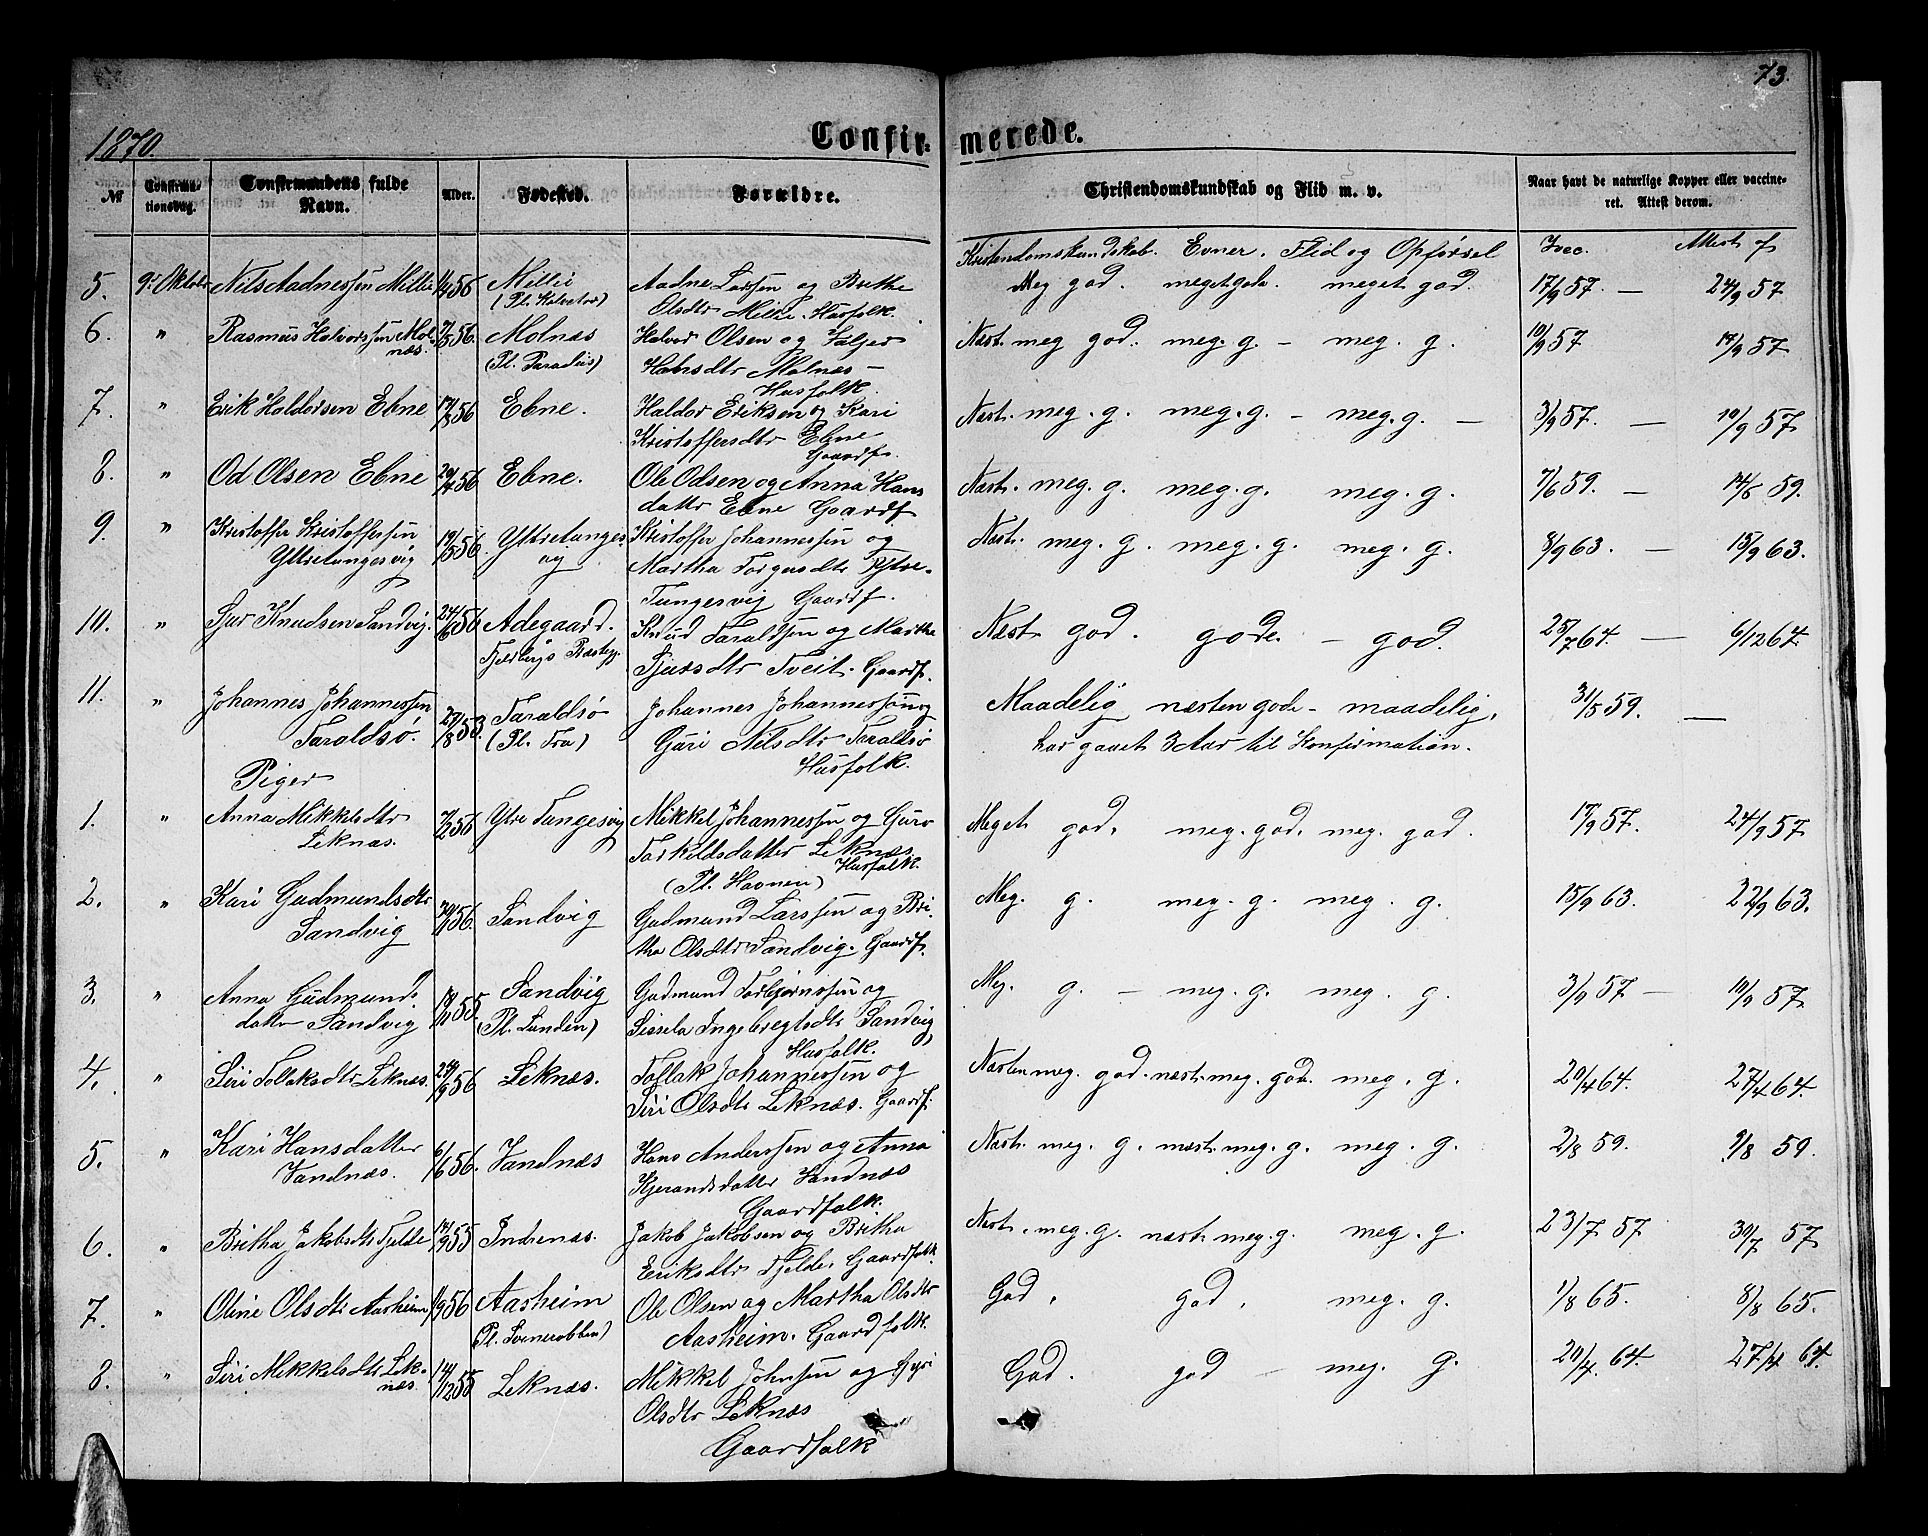 73.
1870.
Confir- merede.
№ Confirma- Confirmandens fulde Alder. Fødested. Forældre. Christendomskundskab og Flid m. v. Naar havt de naturlige Kopper eller vaccine-
tionsdag. Navn. ret. Attest derom.
Kristendomskundskab. Evner. Flid og Opførsel Ivac. Attest af
5. 9. Oktober Nils Aadnessen Millie 56 Millie Aadne Larssen og Brithe Meg god. meget gode. meget god. 17/9 57. — 24/9 57
(Pl. Kalvatre) Olsdtr Millie. Husfolk.
6. " Rasmus Halvorssen Mol- 56. Molnæs Halvor Olsen og Valjer Næst. meg god. meg. g. — meg. g. 10/9 57 17/9 57
næs. (Pl. Paradiis) Hansdtr Molnæs —
Husfolk.
7. " Erik Haldorsen Ebne 17/3 56 Ebne. Haldor Eriksen og Kari Næst. meg. g. meg. g. — meg. g. — 3/9 57. — 10/9 57
Kristoffersdtr Ebne
Gaardf.
8. " Od Olsen Ebne 56 Ebne. Ole Odsen og Anna Hans Næst. meg. g. meg. g. meg. g. 7/6 59. — 14/6 59.
datter Ebne Gaardf
9. " Kristoffer Kristoffersen 19/5 56 Ytretunges Kristoffer Johannessen og Næst. meg. g. meg. g. meg. g. 8/9 63. — 15/9 63.
Yttretungesvig vig Martha Torgersdtr Yttre-
Tungesvig Gaardf.
10. " Sjur Knudsen Sandvig. 24/6 56 Adegaard. Knud Taraldsen og Marthe Næst god. gode. — god. 25/7 64. — 6/12 64.
Fjeldbergs Præstegj. Sjursdtr Tveit. Gaardf.
11. " Johannes Johannessen 27/8 53 Taraldsø Johannes Johannessøn og Maadelig næsten gode — maadelig, 31/5 59. —
Taraldsø. (Pl. Fra) Guri Nilsdtr Taraldsø har gaaet 3 Aar til Konfirmation.
Husfolk.
Piger
1. " Anna Mikkelsdtr 7/2 56 Ytre Tungesvig Mikkel Johannessen og Guro Meget god. meg. god. meg. god. 17/9 57. 24/9 57
Leknæs. Torkeldsdatter Leknæs.
(Pl. Havnen) Husfolk.
2. " Kari Gudmundsdtr 56. Sandvig Gudmund Larssen og Bri- Meg. g. meg. g. meg. g. 15/9 63. 22/9 63.
Sandvig tha Olsdtr Sandvig. Gaardf.
3. " Anna Gudmunds 55. Sandvig Gudmund Torbjørnssen og Meg. g. — meg. g. meg. g. 3/9 57 — 10/9 57
datter Sandvig (Pl. Lunden) Sissela Ingebregtsdtr Sandvig
Husfolk.
4. " Siri Tollaksdtr Leknæs. 56 Leknæs. Tollak Johannessen og Næsten meg. god. næst. meg. gode. meg. g. 20/4 64. 27/4 64.
Siri Olsdtr Leknæs. Gaardf.
5. " Kari Hansdatter 6/6 56. Vandnæs Hans Anderssen og Anna Næst. meg. g. næst. meg. g. meg. g. 2/8 59. 9/8 59.
Vandnæs. Kjerandsdatter Vandnæs
Gaardfolk.
6. " Britha Jakobsdtr Fjelde 55 Indrenæs. Jakob Jakobsen og Britha Næst. meg. g. næst. meg. g. meg. g. 23/7 57 30/7 57
Eriksdtr Fjelde. Gaardfolk.
7. " Oline Olsdtr Aasheim 56 Aasheim Ole Olsen og Martha Olsdtr God. god. meg. g. 1/8 65. 8/8 65.
(Pl. Svenerobben) Aasheim. Gaardfolk.
8. " Siri Mikkelsdtr Lek- 14/12 55 Leknæs. Mikkel Johnsen og Gyri God. god — meg. g. 20/4 64. 27/4 64.
næs. Olsdtr Leknæs
Gaardfolk